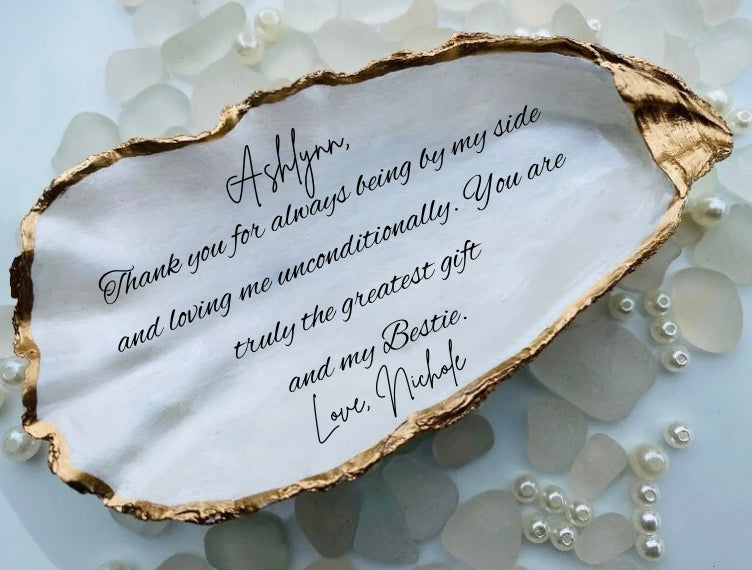 Ashlynn,
Thank you for always being by my side
and loving me unconditionally. You are
truly the greatest gift
and my Bestie.
Love, Nichole